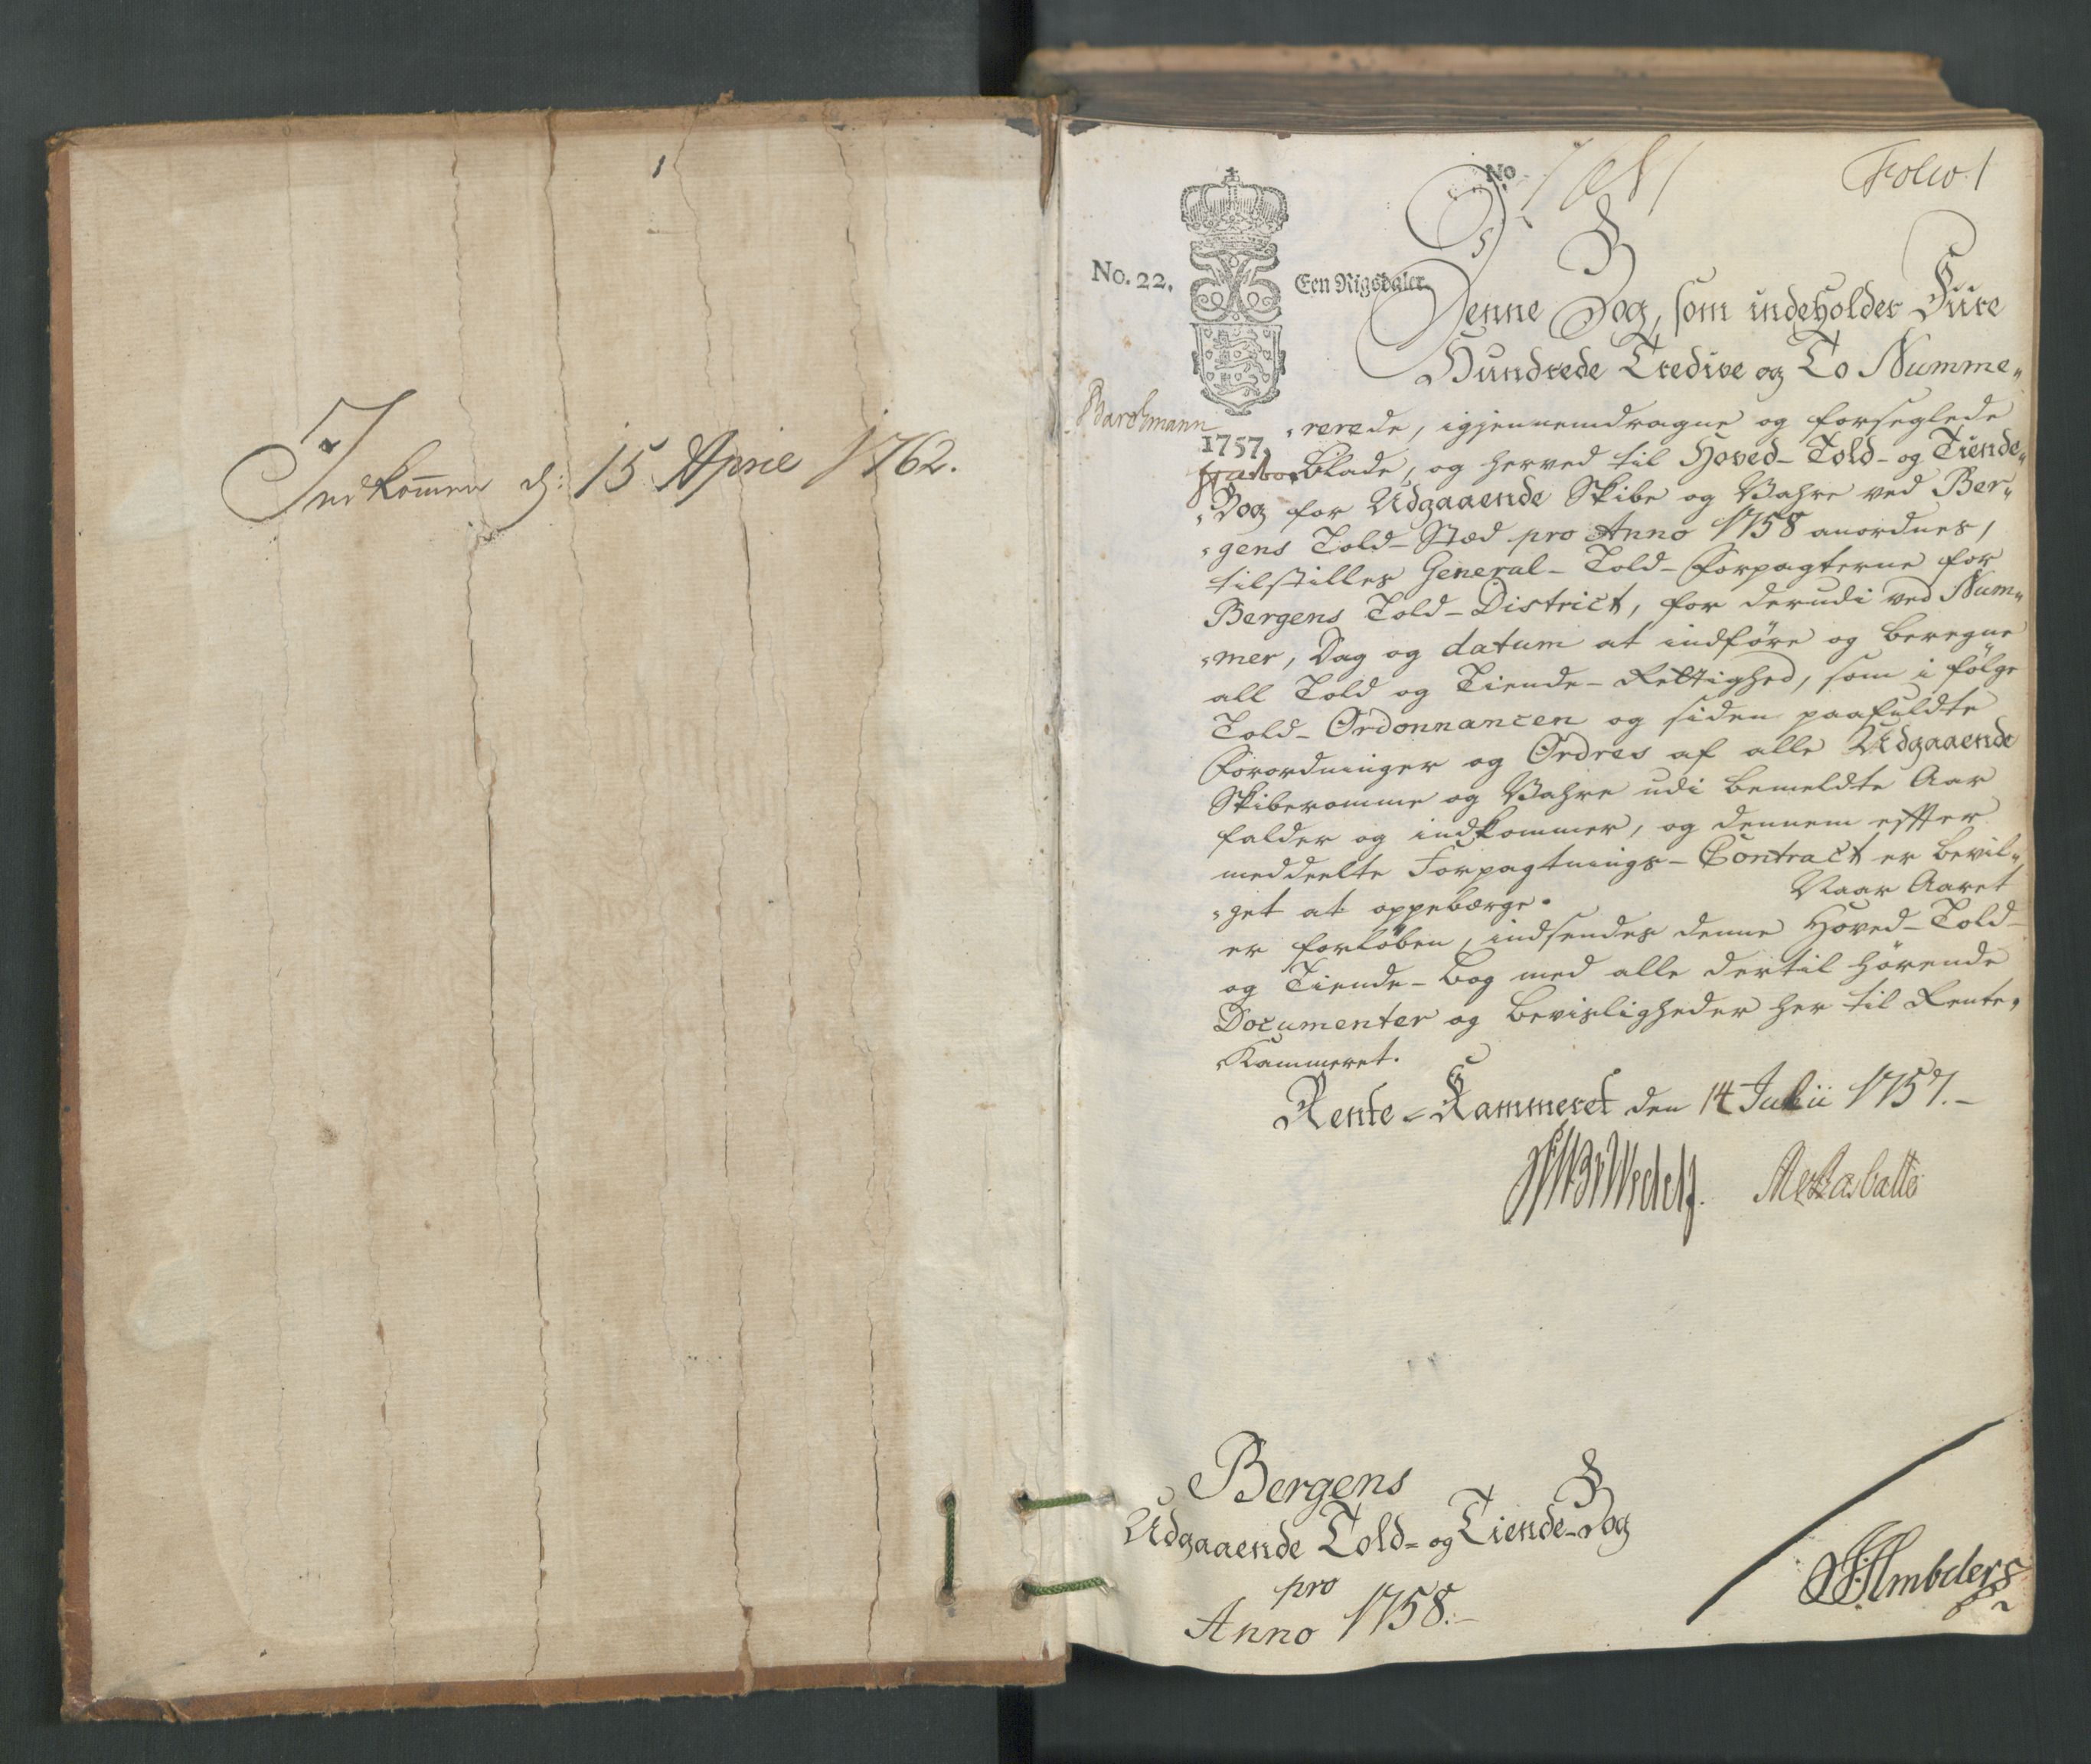 Indkom̅en d: 15 April 1762.
No
Folio 1
No. 22.
Een Rigsdaler.
Denne Bog, som indeholder Fiire
Hundrede Tredive og To Numme„
„rerede, igjennemdragne og forseglede
1757.
Blade, og herved til Hoved-Told- og Tiende„
„Bog for Udgaaende Skibe og Vahre ved Ber„
„gens Told-Stæd pro Anno 1758 anordnes,
tilstilles General-Told-Forpagterne for
Bergens Told-District, for derudi ved Num„
„mer, Dag og datum at indføre og beregne
all Told og Tiende-Rettighed, som i følge
Told-Ordonnancen og siden paafuldte
Forordninger og Ordres af alle Udgaaende
Skiberomme og Vahre udi bemeldte Aar
falder og indkommer, og dennem effter
meddeelte Forpagtnings-Contract er bevil„
„get at oppebærge. Naar Aaret
er forløben, indsendes denne Hoved-Told-
og Tiende-Bog med alle dertil hørende
Documenter og beviisligheder her til Rente„
Kammeret.
Rente-Kammeret den 14 Julii 1757.-
Bergens
Udgaaende Told- og Tiende-Bog
pro
Anno 1758.-